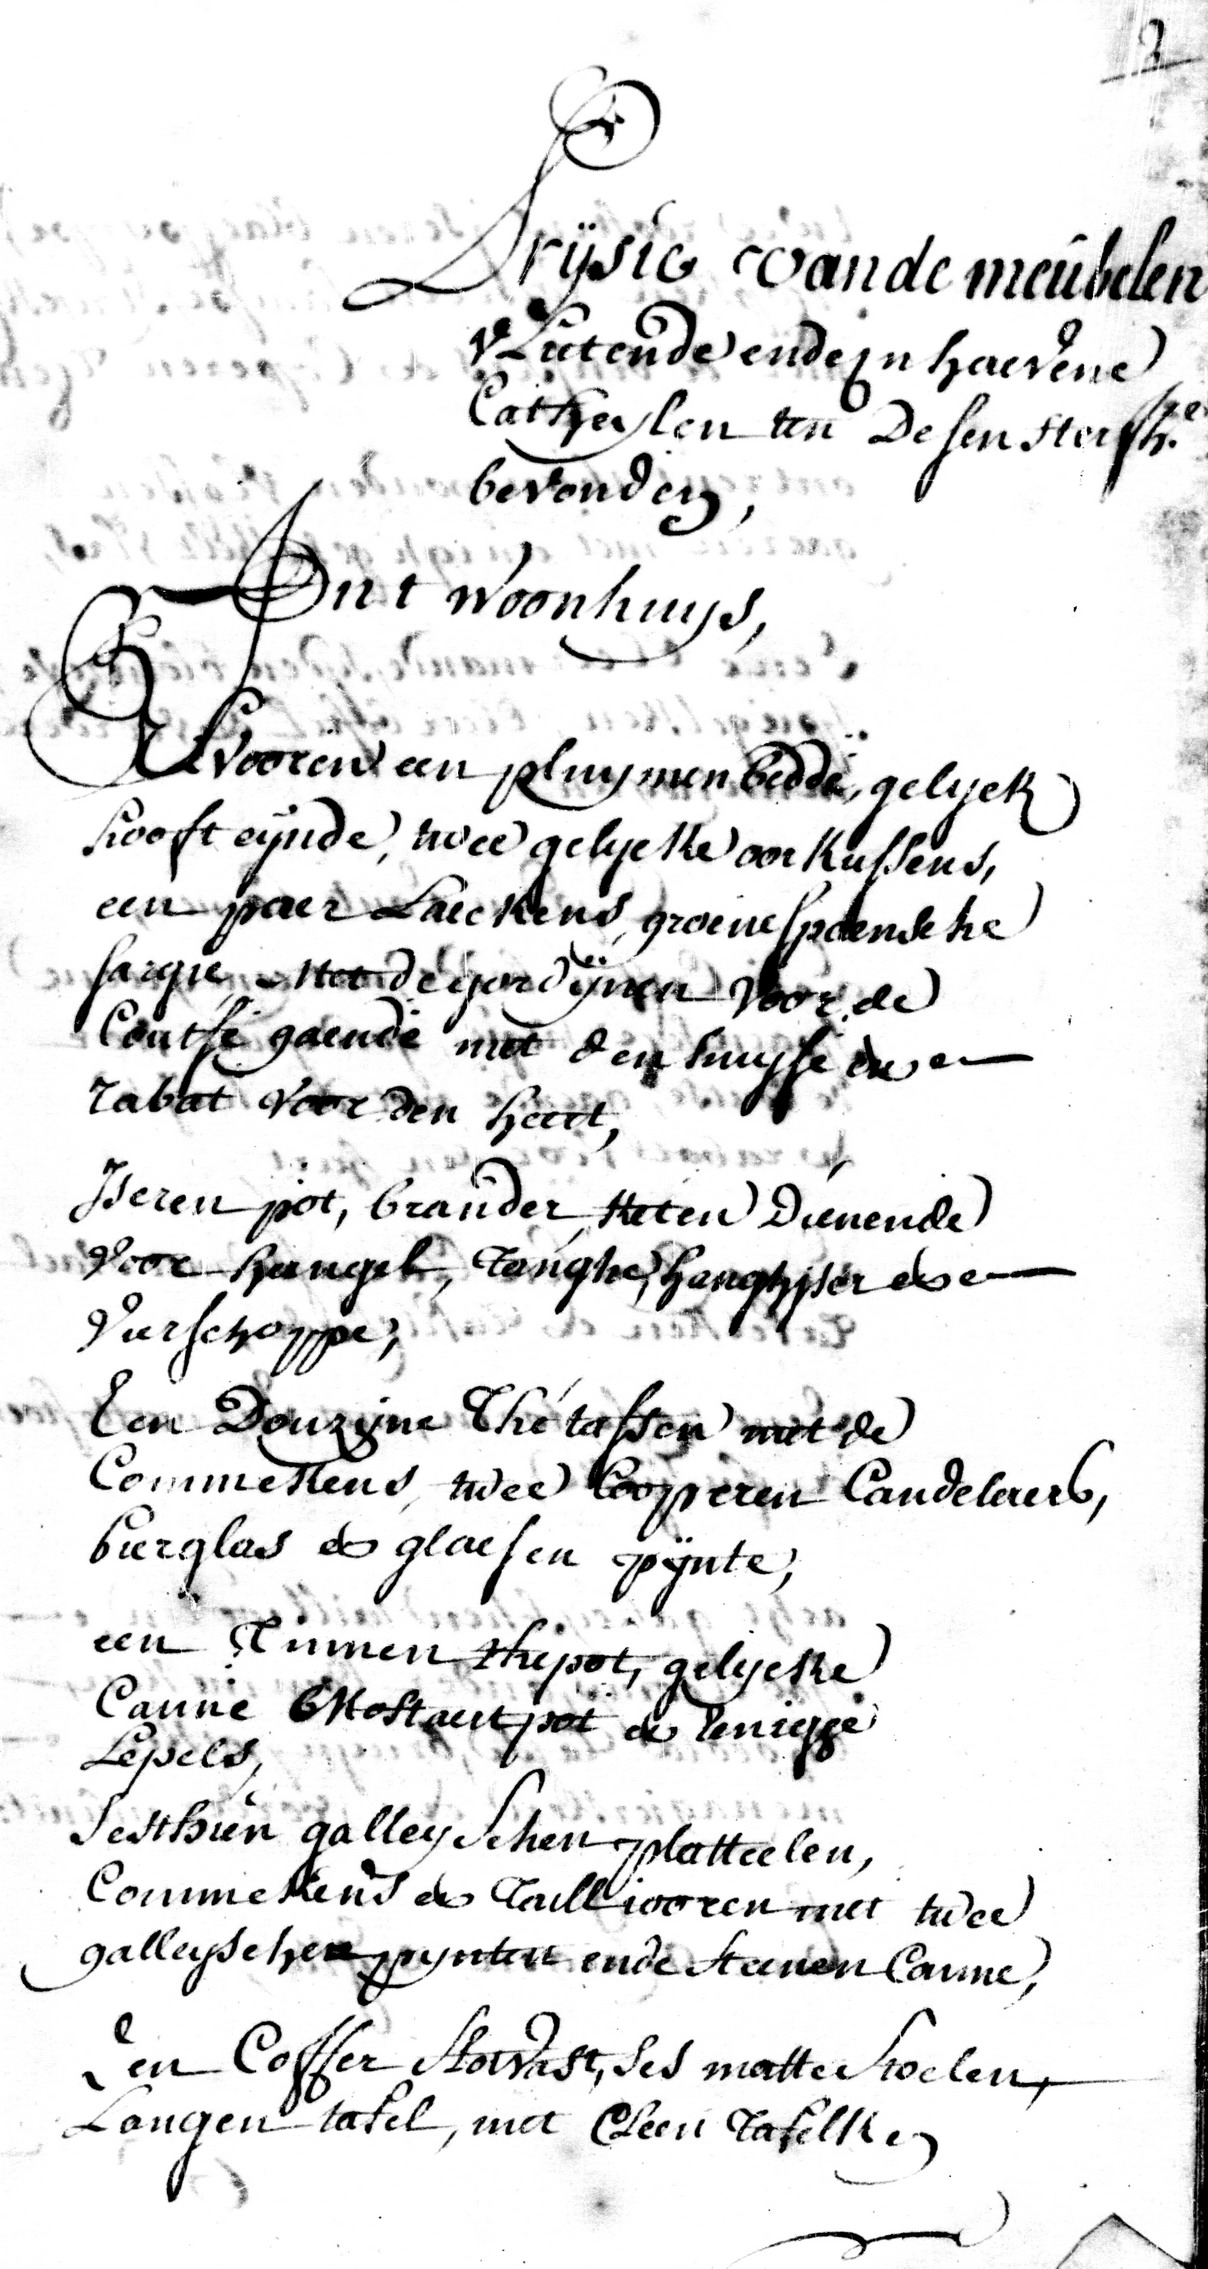 2
Prijsie vande meubelen
vluttende ende in haevene
Catheylen ten desen sterfh.e
bevonden,
In t woonhuys,
Alvooren een pluymen bedde, gelyck
hooft eynde, twee gelycke oorkussens,
een paer Laeckens, groene spaensche
sargie, met de gordynen voor de
Coutse gaende met den huysse ende
rabat voor den heert,
Iseren pot, brander, keten dienende
voor hangel, Tanghe, hanghyser ende
vierschoppe,
Een Douzyne Thé tassen met de
Commekens, twee Coopperen Candelaers,
bierglas & glaesen pynte,
een Tinnen thepot, gelycke
Canne Mostaertpot & eenigge
Lepels,
Sesthien galleyschen platteelen,
Commekens & Taillooren met twee
galleyschen pynten ende steenen Canne,
Een Coffer stovast, ses matte stoelen,
Langen tafel, met Cleen tafelken